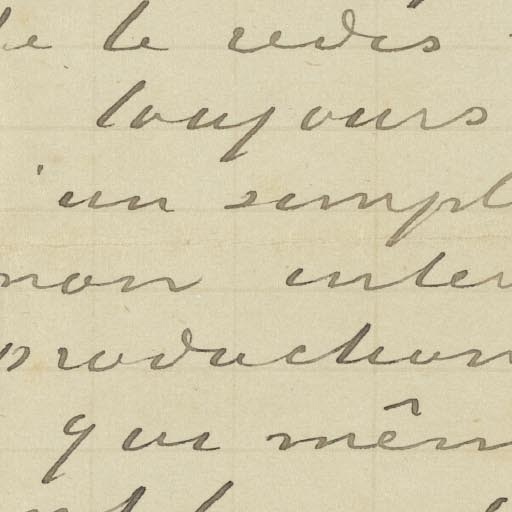 le redis
toujours
un simpl
mon inter
production
que mêm